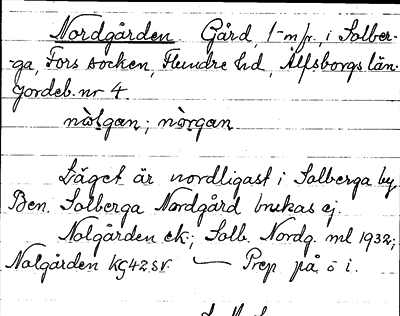 Nordgården Gård, 1-m fr., i Solber-
ga, Fors socken, Flundre hd, Älfsborgs län.
Jordeb. nr 4.
nòlgan; nòrgan
Läget är nordligast i Solberga by.
Ben. Solberga Nordgård brukas ej.
Nolgården ek.; Solb. Nordg. ml 1932;
Nolgården KG42SV. — Prep på o i.